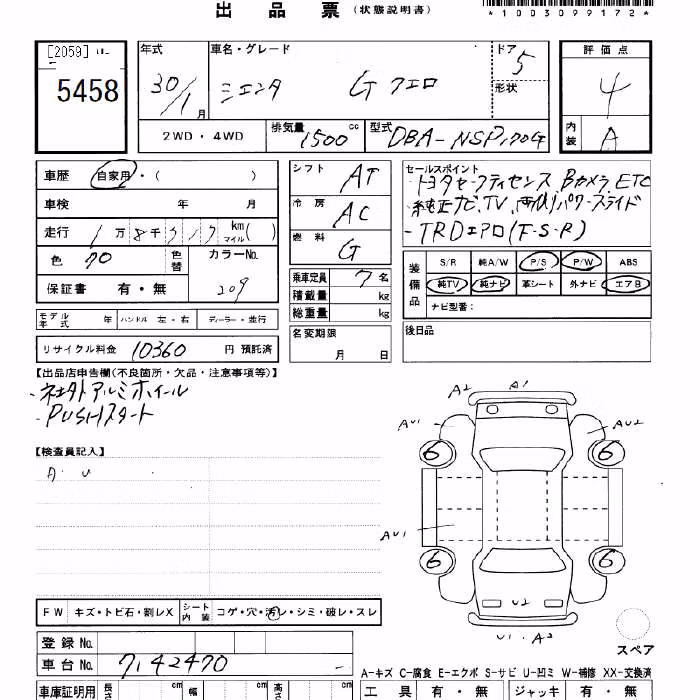 出 品 票 (状態説明書)
*1003099172*
[2059]
5458
年式
30/1月
車名・グレード
シエンタ G クエロ
ドア 5
形状
評価点
4
内装 A
2WD・4WD
排気量 1500 cc
型式 DBA-NSP170G
車歴 自家用・( )
車検 年 月
走行 1万8千 km マイル( )
色 70 色替
カラーNo. 209
保証書 有・無
シフト AT
冷房 AC
燃料 G
セールスポイント
・トヨタセーフティセンス、Bカメラ、ETC
・純正ナビ、TV、両側パワースライド
・TRDエアロ(F-S-R)
装備品 S/R 純A/W P/S P/W ABS
純TV 純ナビ 革シート 外ナビ エアB
ナビ型番:
乗車定員 7名
積載量 kg
総重量 kg
モデル年式 年 ハンドル 左・右 ディーラー・並行
名変期限 月 日
後日品
リサイクル料金 10360 円 預託済
【出品店申告欄(不良箇所・欠品・注意事項等)】
・社外アルミホイール
・PUSHスタート
【検査員記入】
A・U
A2 A1
AU1 AU2
6 6
AU1
6 6
U2
U1・A2
スペア
FW キズ・トビ石・割レX シート内装 コゲ・穴・汚レ・シミ・破レ・スレ
登録No.
車台No. 7142470
A-キズ C-腐食 E-エクボ S-サビ U-凹ミ W-補修 XX-交換済
車庫証明用 長さ cm 幅 cm 高さ cm
工具 有・無 ジャッキ 有・無